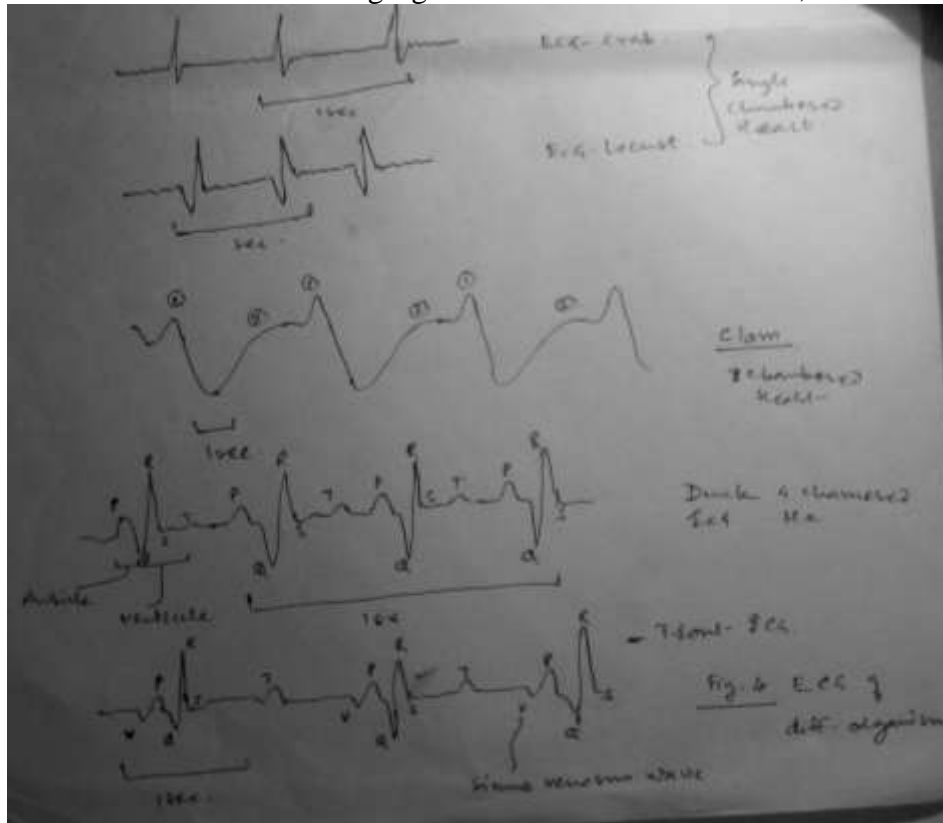 ECG - Crab
1 sec
Single
Chambered
Heart
ECG - Locust
1 sec.
①
②
①
②
①
②
Clam
Chambered
Heart
1 sec
P
R
T
P
R
S
T
P
R
S
T
P
R
S
Q
Q
Q
Duck 4 chambered
ECG
Auricle
Ventricle
1 sec
- Trout - ECG
V
P
Q
R
T
V
P
Q
R
S
T
V
P
Q
R
S
Fig. 4 ECG of
diff. organism
1 sec.
Sinus venosus wave